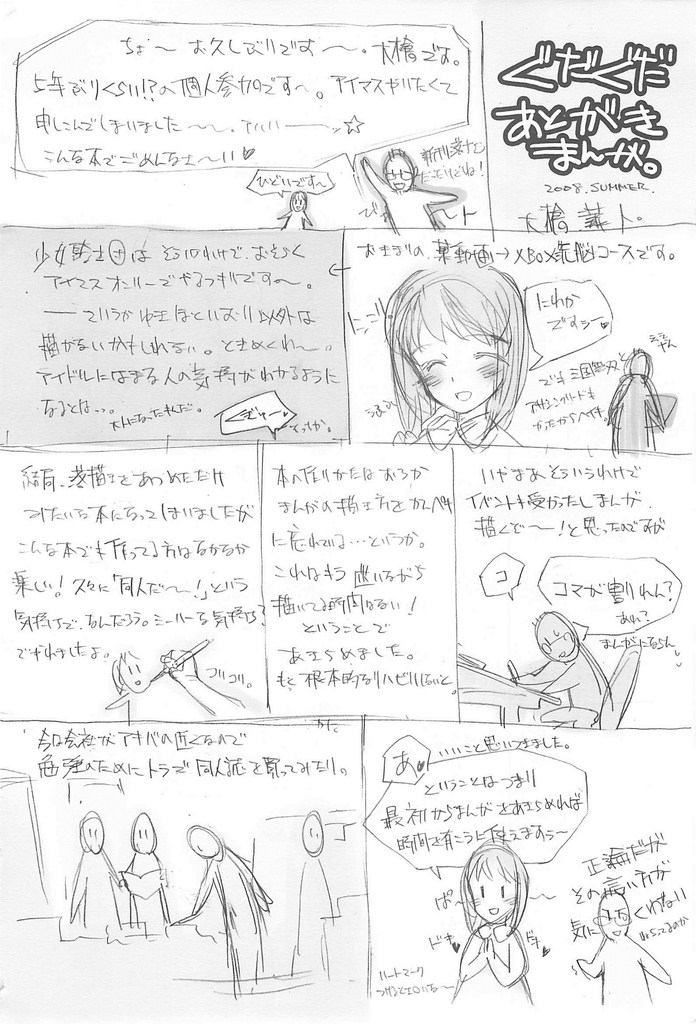 ぐだぐだ
あとがき
まんが。
2008.SUMMER.
大槍葦人。
ちょ〜お久しぶりです〜。大槍です。
5年ぶりくらい!?の個人参加です〜。アイマスやりたくて
申しこんでしまいました〜〜。
こんな本でごめんなさ〜い♥
ひどいです〜
新刊落ナエ
だったけどね!
おきまりの、某動画→XBOX洗脳コースです。
にこにこ
にわか
ですぅ〜♥
でも三国無双と
アサシンクリードも
かったからヘイキ。
少女騎士団は そういうわけで、おそらく
アイマスオンリーでやるつもりです〜。
――ていうかゆきほといおり以外は
描かないかもしれない。ときめくわ〜。
アイドルにはまる人の気持がわかるように
なるとは…。
大人になったもんだ。
いやまあそういうわけで
イベントも受かったしまんが
描くぞ〜!と思ったのですが
コ
コマが割りれん?
あれ?
まんがにならん
本の作りかたはおろか
まんがの描き方をカンペキ
に忘れている…というか。
これはもう 迷いながら
描いてる時間はない!
ということで
あきらめました。
もっと根本的なリハビリしないと。
結局、落描きをあつめただけ
みたいな本になってしまいましたが
こんな本でも作ってる方はなかなか
楽しい!久々に「同人だ〜!」という
気持ちで、なんだろう。ミーハーな気持ち?
でやれましたよ。
ゴリゴリ。
今は会社がアキバの近くなので
勉強のためにトラで同人誌を買ってみたり。
あ♥
いいこと思いつきました。
ということはつまり
最初からまんがをあきらめれば
時間を有こうに使えますぅ〜
ぱ〜
ドキ
ドキ
ハートマーク
つけるとエロいな〜
正論だが
その言い方が
気にくわない